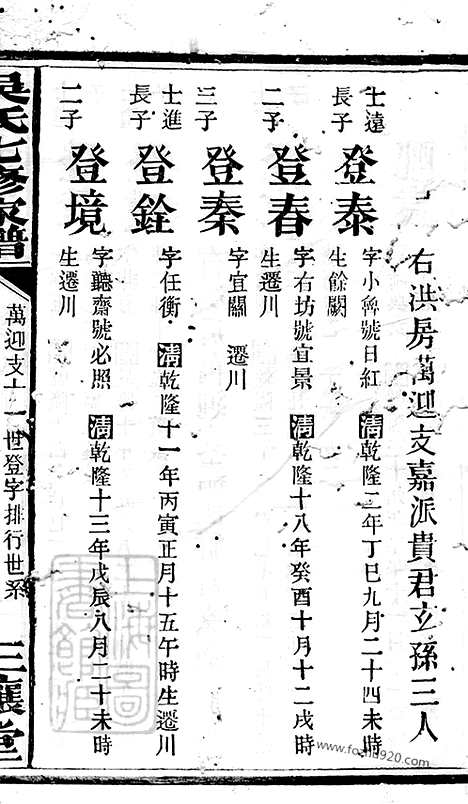 右洪房萬迎支嘉派貴君玄孫三人
士遠長子
登泰
字小魯號日紅 清乾隆二年丁巳九月二十四未時
生餘闕
二子
登春
字右坊號宜景 清乾隆十八年癸酉十月十二戌時
生遷川
三子
登秦
字宜關 遷川
士進長子
登銓
字任衡 清乾隆十一年丙寅正月十五午時生遷川
二子
登境
字聽齋號必照 清乾隆十三年戊辰八月二十未時
生遷川
吳氏七修家譜
萬迎支十一世登字排行世系
三讓堂
上海圖書館藏
www.fozhu920.com